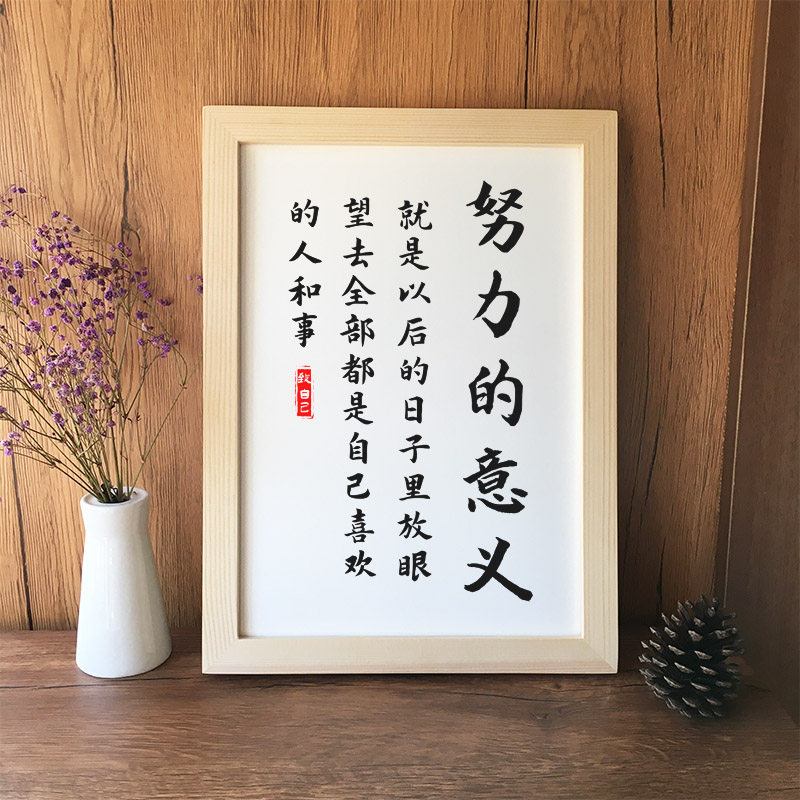 努力的意义
就是以后的日子里放眼
望去全部都是自己喜欢
的人和事
致自己